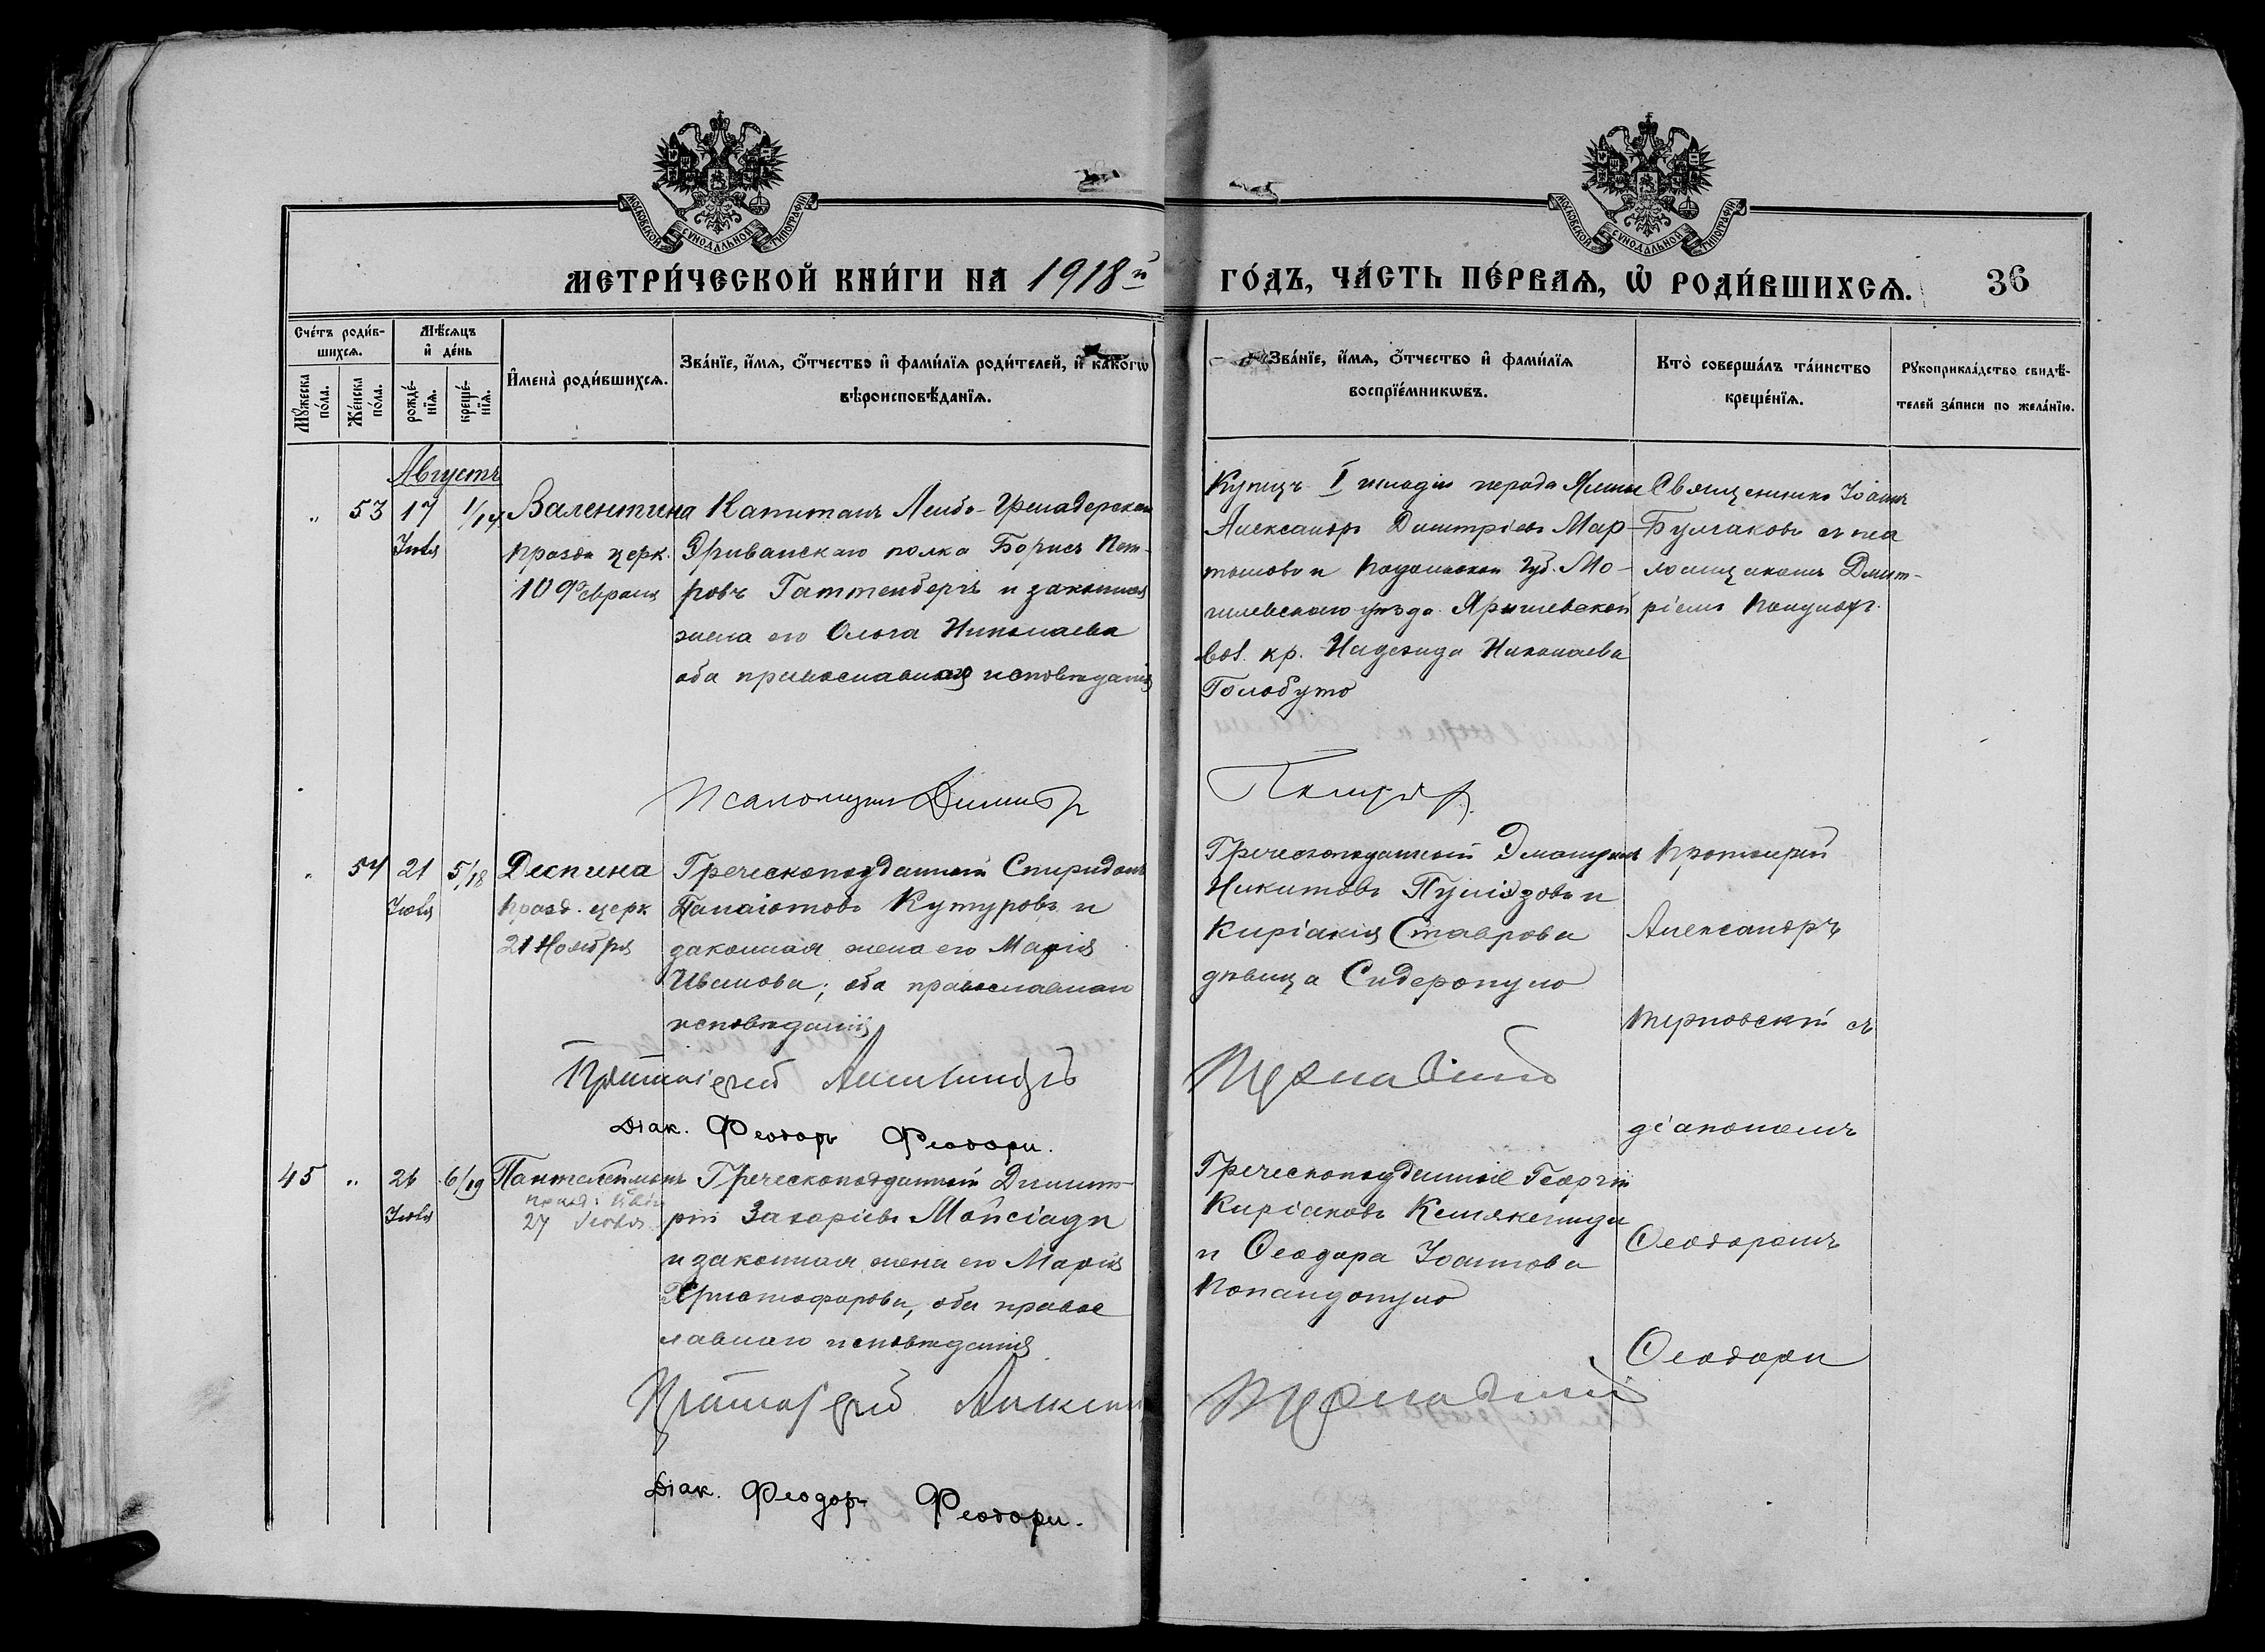 МОСКОВСКОЙ СѴНОДАЛЬНОЙ ТИПОГРАФІИ
МОСКОВСКОЙ СѴНОДАЛЬНОЙ ТИПОГРАФІИ
МЕТРИ́ЧЕСКОЙ КНИ́ГИ НА 1918й
ГО́ДЪ, ЧА́СТЬ ПЕ́РВАѦ, Ѡ҆ РОДИ́ВШИХСѦ. 36
Сче́тъ роди́в-
шихсѧ.
Мѣ́сѧцъ
и҆ де́нь
Мꙋ́жеска
по́ла.
Же́нска
по́ла.
рожде́-
нїѧ.
креще́-
нїѧ.
И҆мена̀ роди́вшихсѧ.
Зва́нїе, и҆́мѧ, ѻ҆́тчество и҆ фами́лїѧ роди́телей, и҆ како́гѡ
вѣроисповѣ́данїѧ.
Зва́нїе, и҆́мѧ, ѻ҆́тчество и҆ фами́лїѧ
воспрїе́мникѡвъ.
Кто̀ соверша́лъ та́инство
креще́нїѧ.
Рꙋкоприкла́дство свидѣ́-
телей за́писи по жела́нїю.
Августъ
„ 53 17 1/14
Іюля
Валентина
празд церк.
10 Февраля
Капитанъ Лейбъ-Гренадерскаго
Эриванскаго полка Борисъ Пет-
ровъ Гаттенбергъ и законная
жена его Ольга Николаева
оба православнаго исповѣданія
Купецъ I гильдіи города
Александръ Димитріевъ Мар-
и Подольской Губ. Мо-
гилевскаго уѣзда Ярышевской
вол. кр. Надежда Николаева
Голобутo
Священникъ Іоаннъ
Булгаковъ съ пса
ломщикомъ Дмит-
ріемъ
Псаломщикъ Димитр
„ 54 21 5/18
Іюля
Деспина
празд. церк
21 Ноября
Греческоподданный Спиридонъ
Панаіотовъ Кутуровъ и
законная жена его Марія
Иванова; оба православнаго
исповѣданія
Греческоподданный Эмануилъ
Никитовъ и
Киріакія Ставрова
дѣвица Сидеропуло
Протоіерей
Александръ
съ
діакономъ
Ѳеодоромъ
Ѳеодори
Протоіерей Александръ
Діак. Феодоръ Феодори.
45 „ 26 6/19
Іюля
Пантелеимонъ
празд: церк
27 Іюля
Греческоподданный Димит-
рій Захаріевъ Мойсіади
и законная жена его Марія
Христофорова, оба правос
лавнаго исповѣданія
Греческоподданные Георгій
Киріаковъ
и Ѳеодора Іоаннова
Попандопуло
Протоіерей Александ
Діак. Феодоръ Феодори.